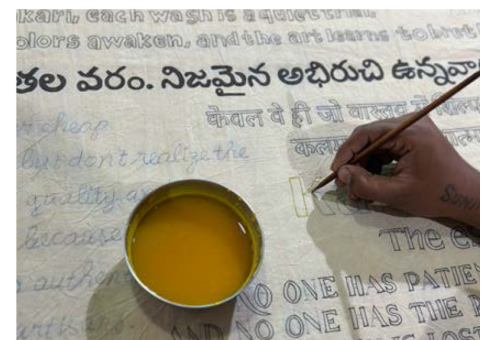 kari, each wash is a quiet trial.
olors awaken, and the art learns to breat
తల వరం. నిజమైన అభిరుచి ఉన్నవా
केवल वे ही जो वास्तव में शिल्प
कलम
cheap
but don't realize the
quality
because
K
The e
authen
NO ONE HAS PATIEN
AND NO ONE HAS THE
artisans
IS LOST